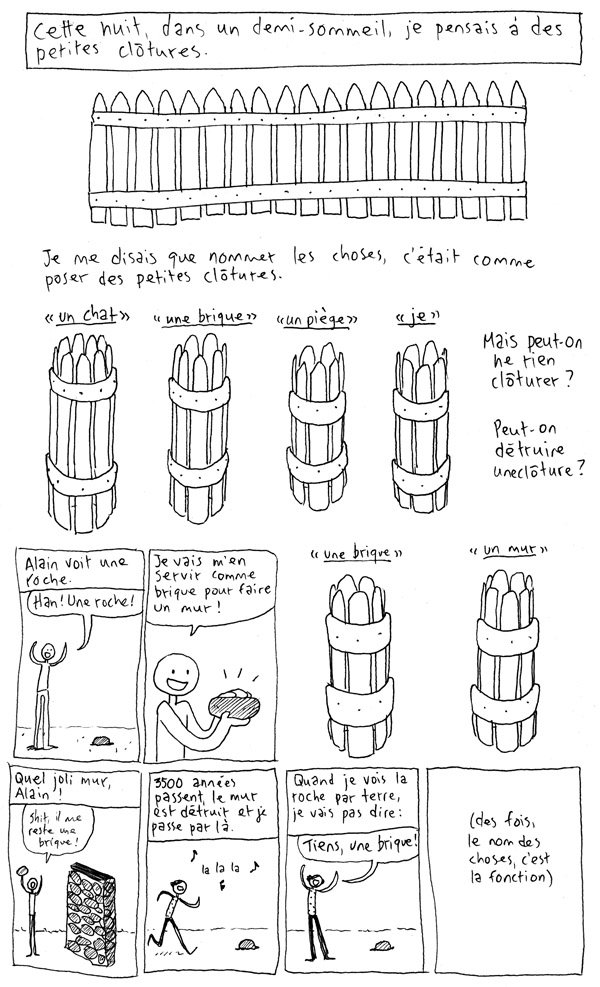 Cette nuit, dans un demi-sommeil, je pensais à des
petites clôtures.
Je me disais que nommer les choses, c'était comme
poser des petites clôtures.
« un chat »
« une brique »
« un piège »
« je »
Mais peut-on
ne rien
clôturer ?
Peut-on
détruire
une clôture ?
Alain voit une
roche.
Han! Une roche!
Je vais m'en
servir comme
brique pour faire
un mur !
« une brique »
« un mur »
Quel joli mur,
Alain !
Shit, il me
reste une
brique !
3500 années
passent, le mur
est détruit et je
passe par là.
la la la
Quand je vois la
roche par terre,
je vais pas dire :
Tiens, une brique!
(des fois,
le nom des
choses, c'est
la fonction)